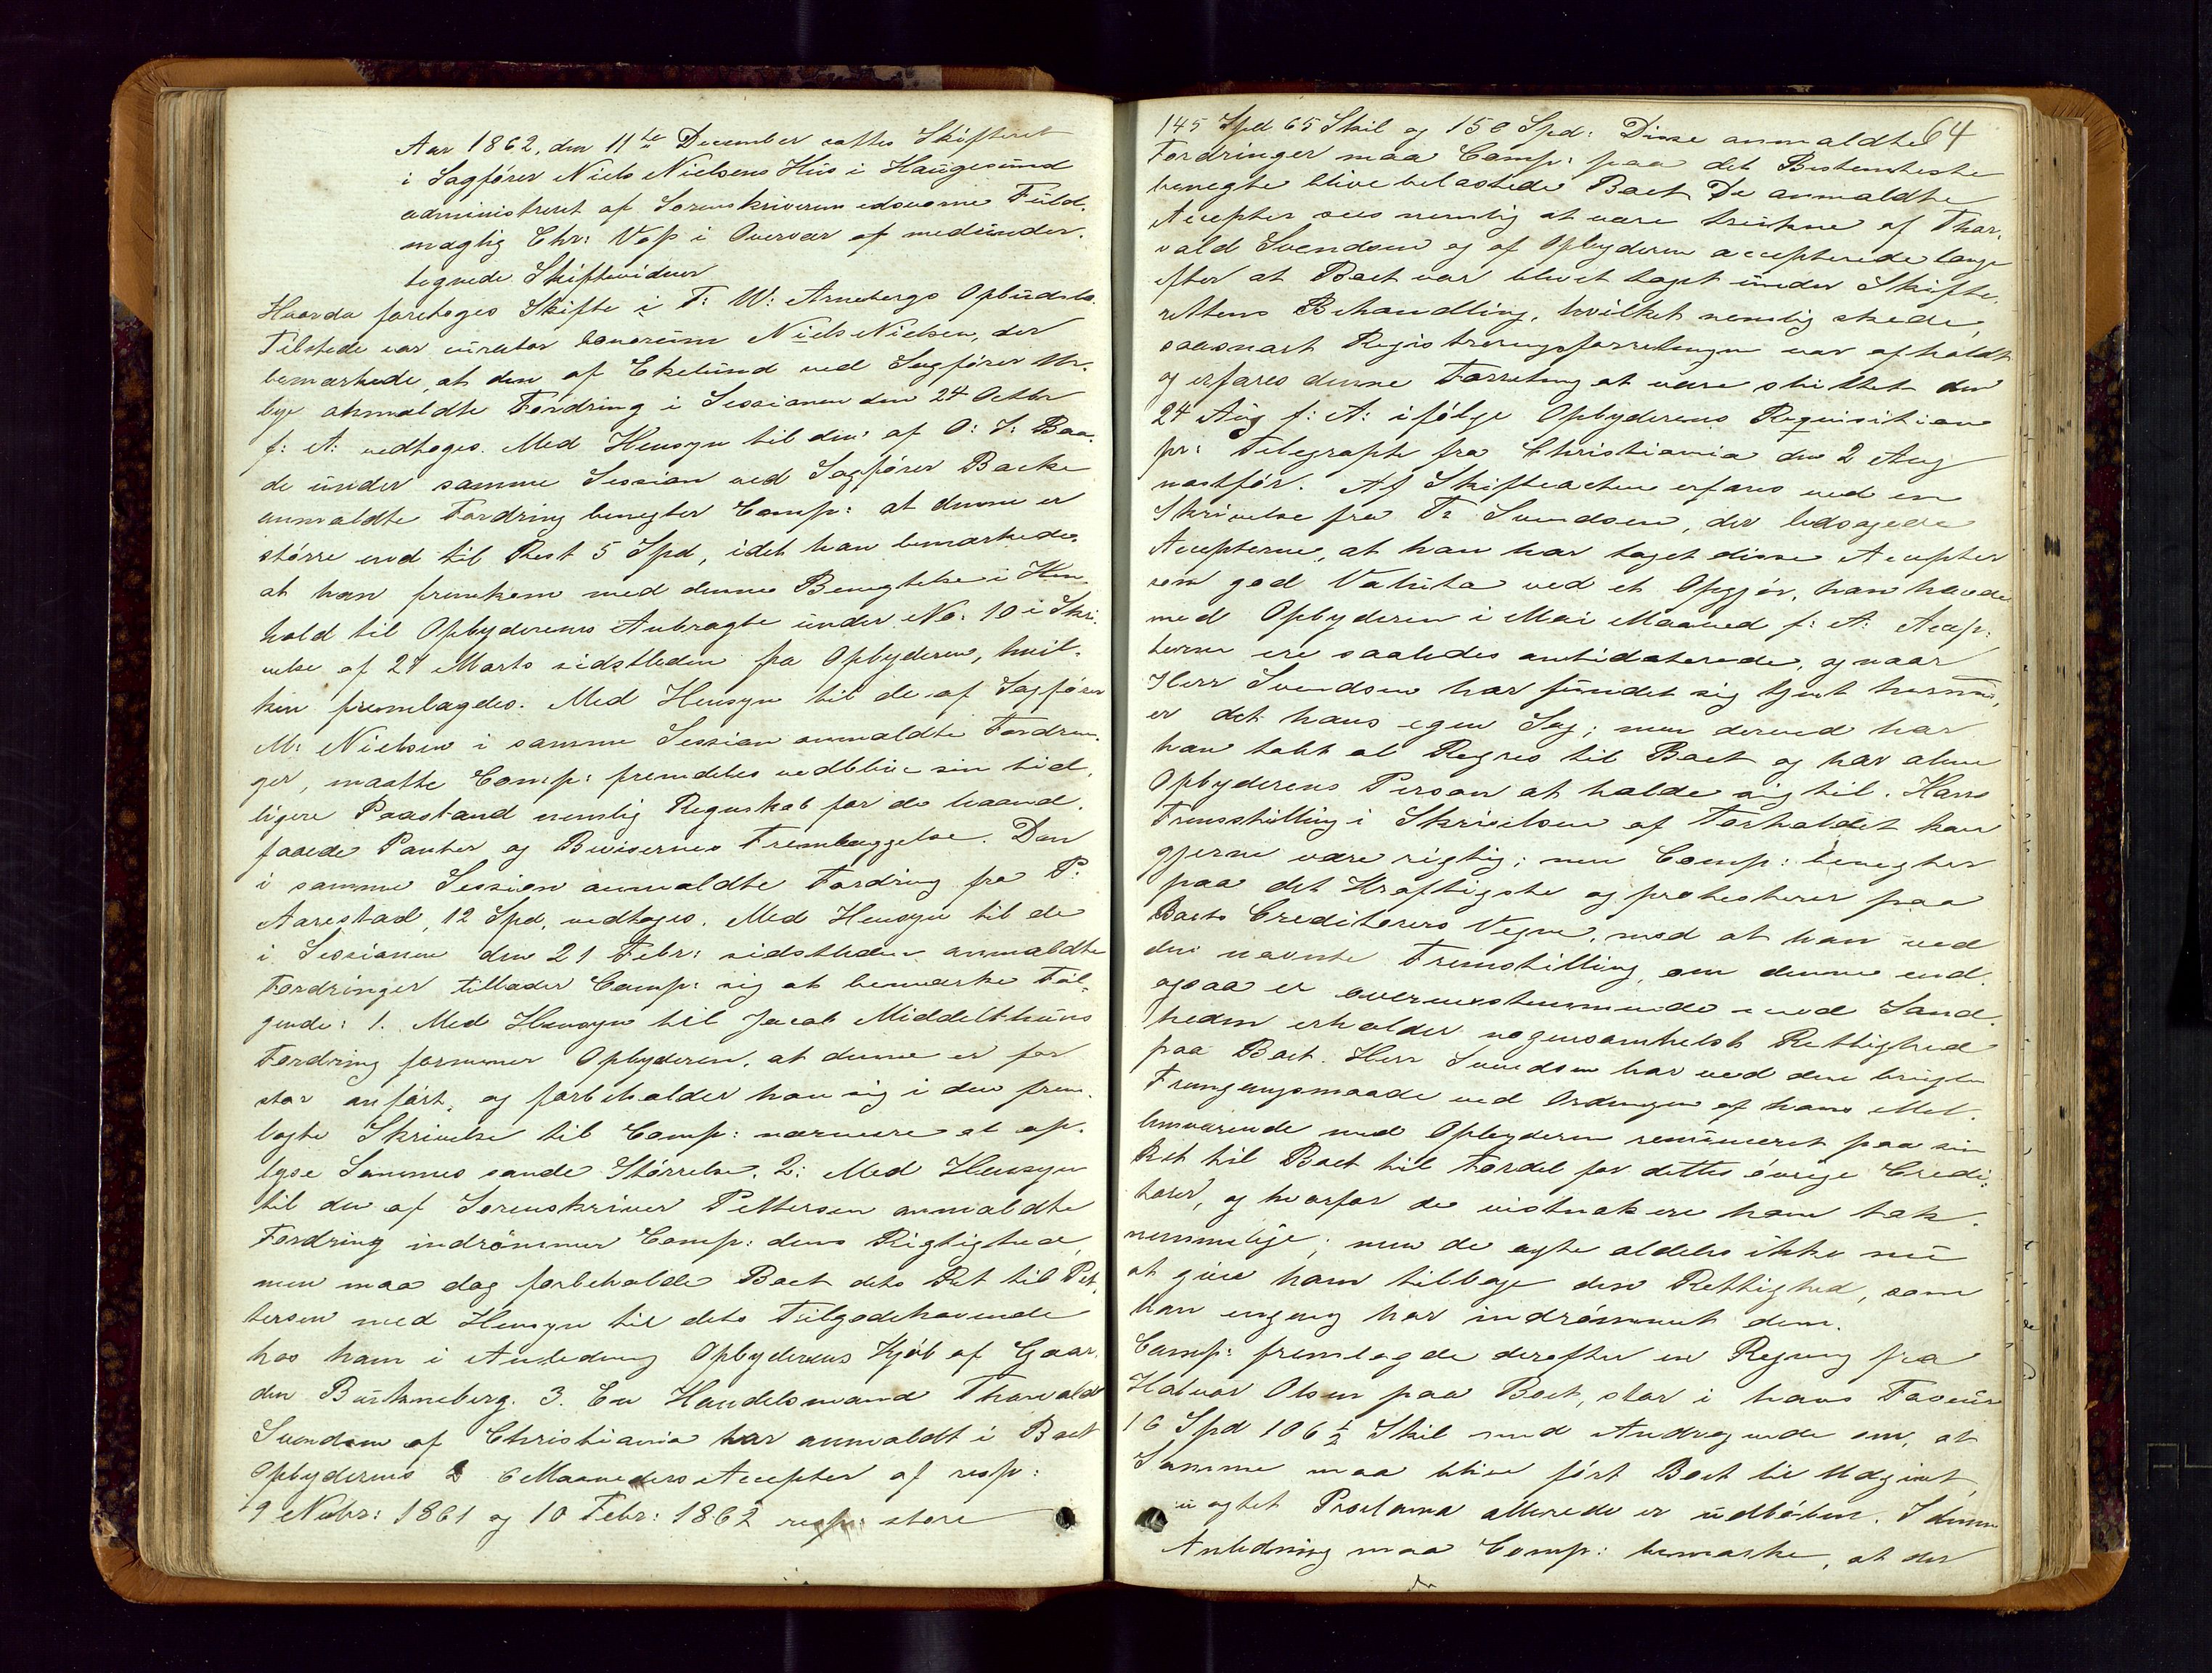 Aar 1862, den 11te December sattes Skifteret
i Sagfører Niels Nielsens Hüs i Haügesünd
administreret af Sorenskriverens edsvorne Füld-
mægtig Chr: Voss i Overvær af medünder-
tegnede Skiftevidner
Hvorda foretoges Skifte i T: W: Arnebergs Opbüdsbo.
Tilstede var cürator bonorüm Niels Nielsen, der
bemærkede, at den af Ekelünd ved Sagfører
anmeldte Fordring i Sessionen den 24 Octbr
f: A: vedtoges. Med Hensyn til den af O: S: Baa-
de ünder samme Session ved Sagfører Backe
anmeldte Fordring benegter Comp: at denne er
større end til Rest 5 Spd, idet han bemærkede,
at han fremkom med denne Benegtelse i Hen-
hold til Opbyderens Anbragte ünder No: 10 i Skri-
velse af 27 Marts sidstleden fra Opbyderen, hvil-
ken fremlagdes. Med Hensyn til de af Sagfører
M: Nielsen i samme Session anmeldte Fordrin-
ger, maatte Comp: fremdeles vedblive sin tid-
ligere Paastand nemlig Regnskab for de haand-
faaede Panter og Bevisernes Fremlæggelse. Den
i samme Session anmeldte Fordring fra P:
Aarestad, 12 Spd, vedtoges. Med Hensyn til de
i Sessionen den 21 Febr: sidstleden anmeldte
Fordringer tillader Comp: sig at bemærke Føl-
gende: 1. Med Hensyn til Jacob Middelthüns
Fordring formener Opbyderen, at denne er for
stor anført, og forbeholder han sig i den frem-
lagte Skrivelse til Comp: nærmere at op-
lyse Sammes sande Størrelse. 2: Med Hensyn
til den af Sorenskriver Pettersen anmeldte
Fordring indrømmer Comp: dens Rigtighed
men maa dog forbeholde Boet dets Ret til Pet-
tersen med Hensyn til dets Tilgodehavende
hos ham i Anledning Opbyderens Kjøb af Gaar-
den Bürkneberg. 3. En Handelsmand Thorvald
Svendsen af Christiania har anmeldt i Boet
Opbyderens 2 6 Maaneders Accepter af resp:
19 Novbr: 1861 og 10 Febr: 1862 resp: store
64
145 Spd 65 Skil og 150 Spd: Disse anmeldte
Fordringer maa Comp: paa det Bestemteste
benegte blive belastede Boet. De anmeldte
Accepter sees nemlig at være trükne af Thor-
vald Svendsen og af Opbyderen accepterede længe
efter at Boet var blevet taget ünder Skifte-
rettens Behandling, hvilket nemlig skede,
saasnart Registreringsforretningen var afholdt
og erfares denne Forretning at være slüttet den
24 Aüg f: A: ifølge Opbyderens Reqvisition
pr: Telegraph fra Christiania den 2 Aug
næstfør. Af Skifteacten erfares ved en
Skrivelse fra T: Svendsen, der ledsagede
Accepterne, at han har taget disse Accepter
som god Valüta ved et Opgjør, han havde
med Opbyderen i Mai Maaned f: A: Accep-
terne ere saaledes antidaterede, og naar
Herr Svendsen har fündet sig tjent hermed,
er det hans egen Sag; men derved har
han tabt al Regres til Boet og har alene
Opbyderens Person at holde sig til. Hans
Fremstilling i Skrivelsen af Forholdet kan
gjerne være rigtig; men Comp: benegter
paa det Kraftigste og protesterer paa
Boets Creditorers Vegne, mod at han ved
den nævnte Fremstilling, om denne end-
ogsaa er overensstemmende med Sand-
heden erholder nogensomhelst Rettighed
paa Boet. Herr Svendsen har ved den brügte
Fremgangsmaade ved Ordningen af hans Mel-
lemværende med Opbyderen renünceret paa sin
Ret til Boet til Fordel for dettes øvrige Credi-
torer, og hvorfor de vistnok ere ham tak-
nemmelige; men de agte aldeles ikke nü
at give ham tilbage den Rettighed, som
han engang har indrømmet dem.
Comp: fremlagde derefter en Regning fra
Halvor Olsen paa Boet, stor i hans Faveür
16 Spd 106 ½ Skil med Andragende om, at
Samme maa blive ført Boet til Udgivt,
üagtet Proclama allerede er üdløben. I denne
Anledning maa Comp: bemærke, at der